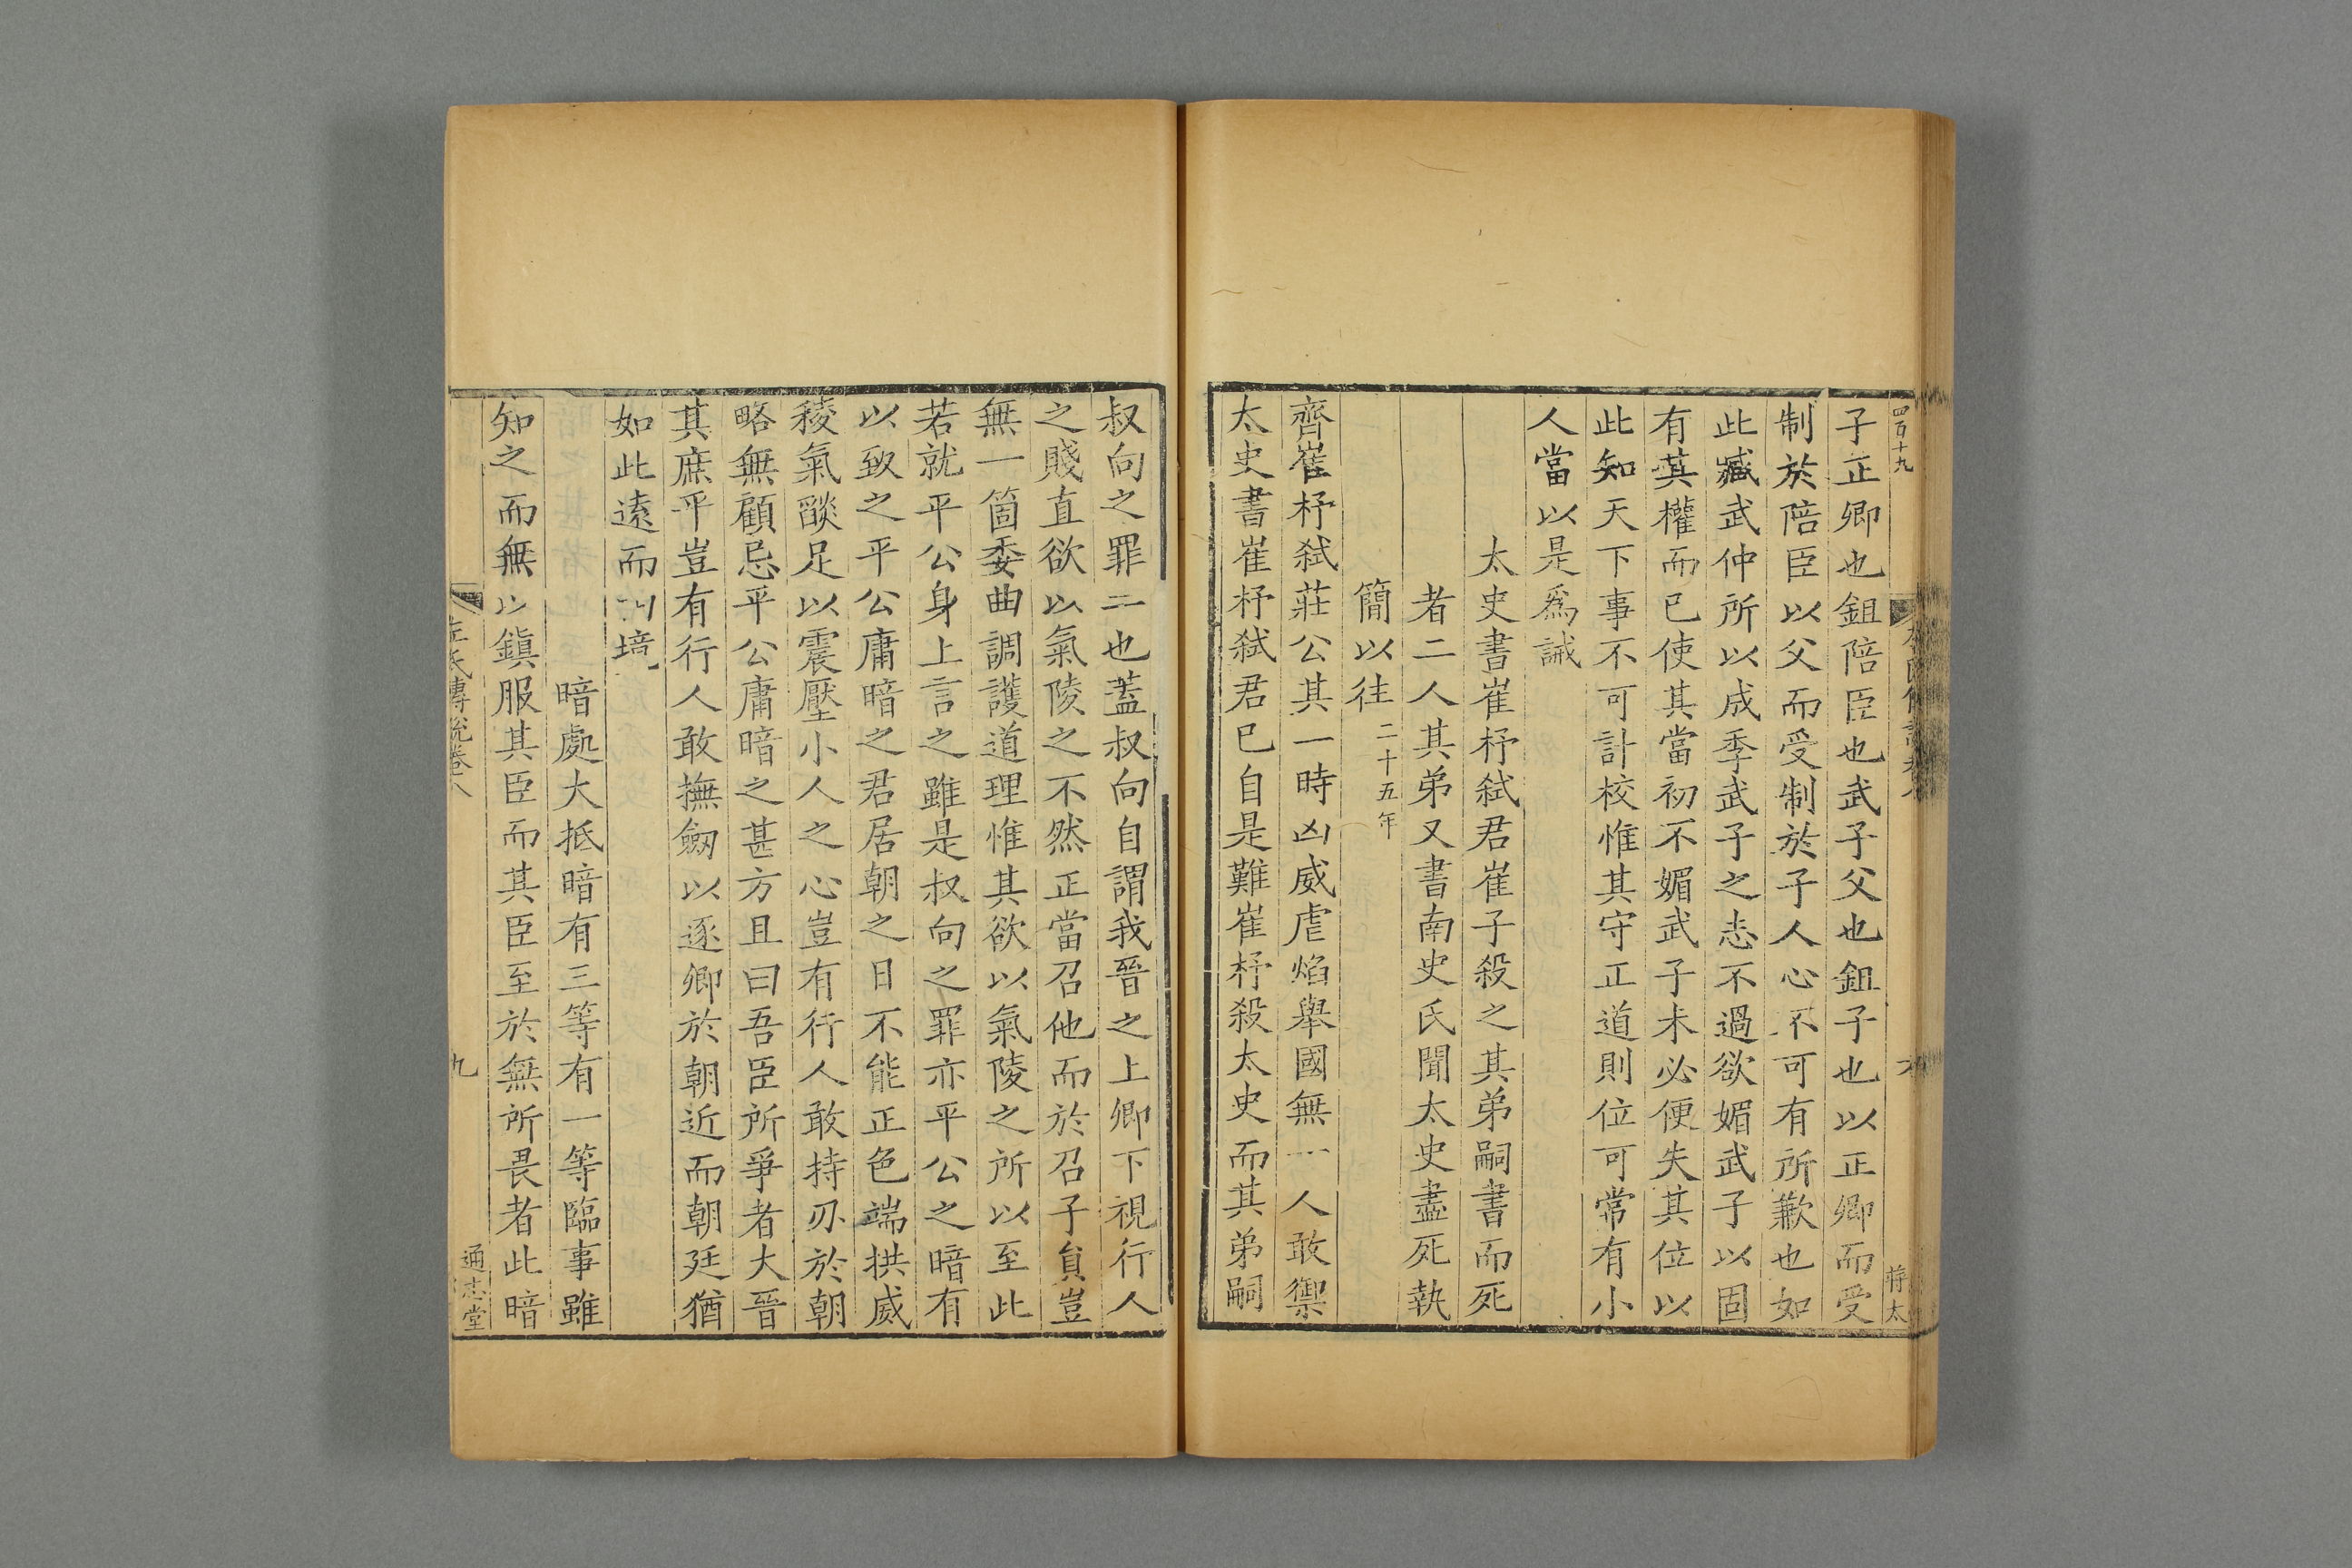 四百十九
子正卿也鉏陪臣也武子父也鉏子也以正卿而受
制於陪臣以父而受制於子人心不可有所歉也如
此臧武仲所以成季武子之志不過欲媚武子以固
有其權而已使其當初不媚武子未必便失其位以
此知天下事不可計校惟其守正道則位可常有小
人當以是爲誡
太史書崔杼弑君崔子殺之其弟嗣書而死
者二人其弟又書南史氏聞太史盡死執
簡以往二十五年
齊崔杼弑莊公其一時凶威虐焰舉國無一人敢禦
太史書崔杼弑君已自是難崔杼殺太史而其弟嗣
叔向之罪二也蓋叔向自謂我晉之上卿下視行人
之賤直欲以氣陵之不然正當召他而於召子貟豈
無一箇委曲調護道理惟其欲以氣陵之所以至此
若就平公身上言之雖是叔向之罪亦平公之暗有
以致之平公庸暗之君居朝之日不能正色端拱威
稜氣燄足以震壓小人之心豈有行人敢持刃於朝
略無顧忌平公庸暗之甚方且曰吾臣所爭者大晉
其庶乎豈有行人敢撫劒以逐卿於朝近而朝廷猶
如此遠而 境
暗處大抵暗有三等有一等臨事雖
知之而無以鎮服其臣而其臣至於無所畏者此暗
左氏傳說卷八
九
通志堂